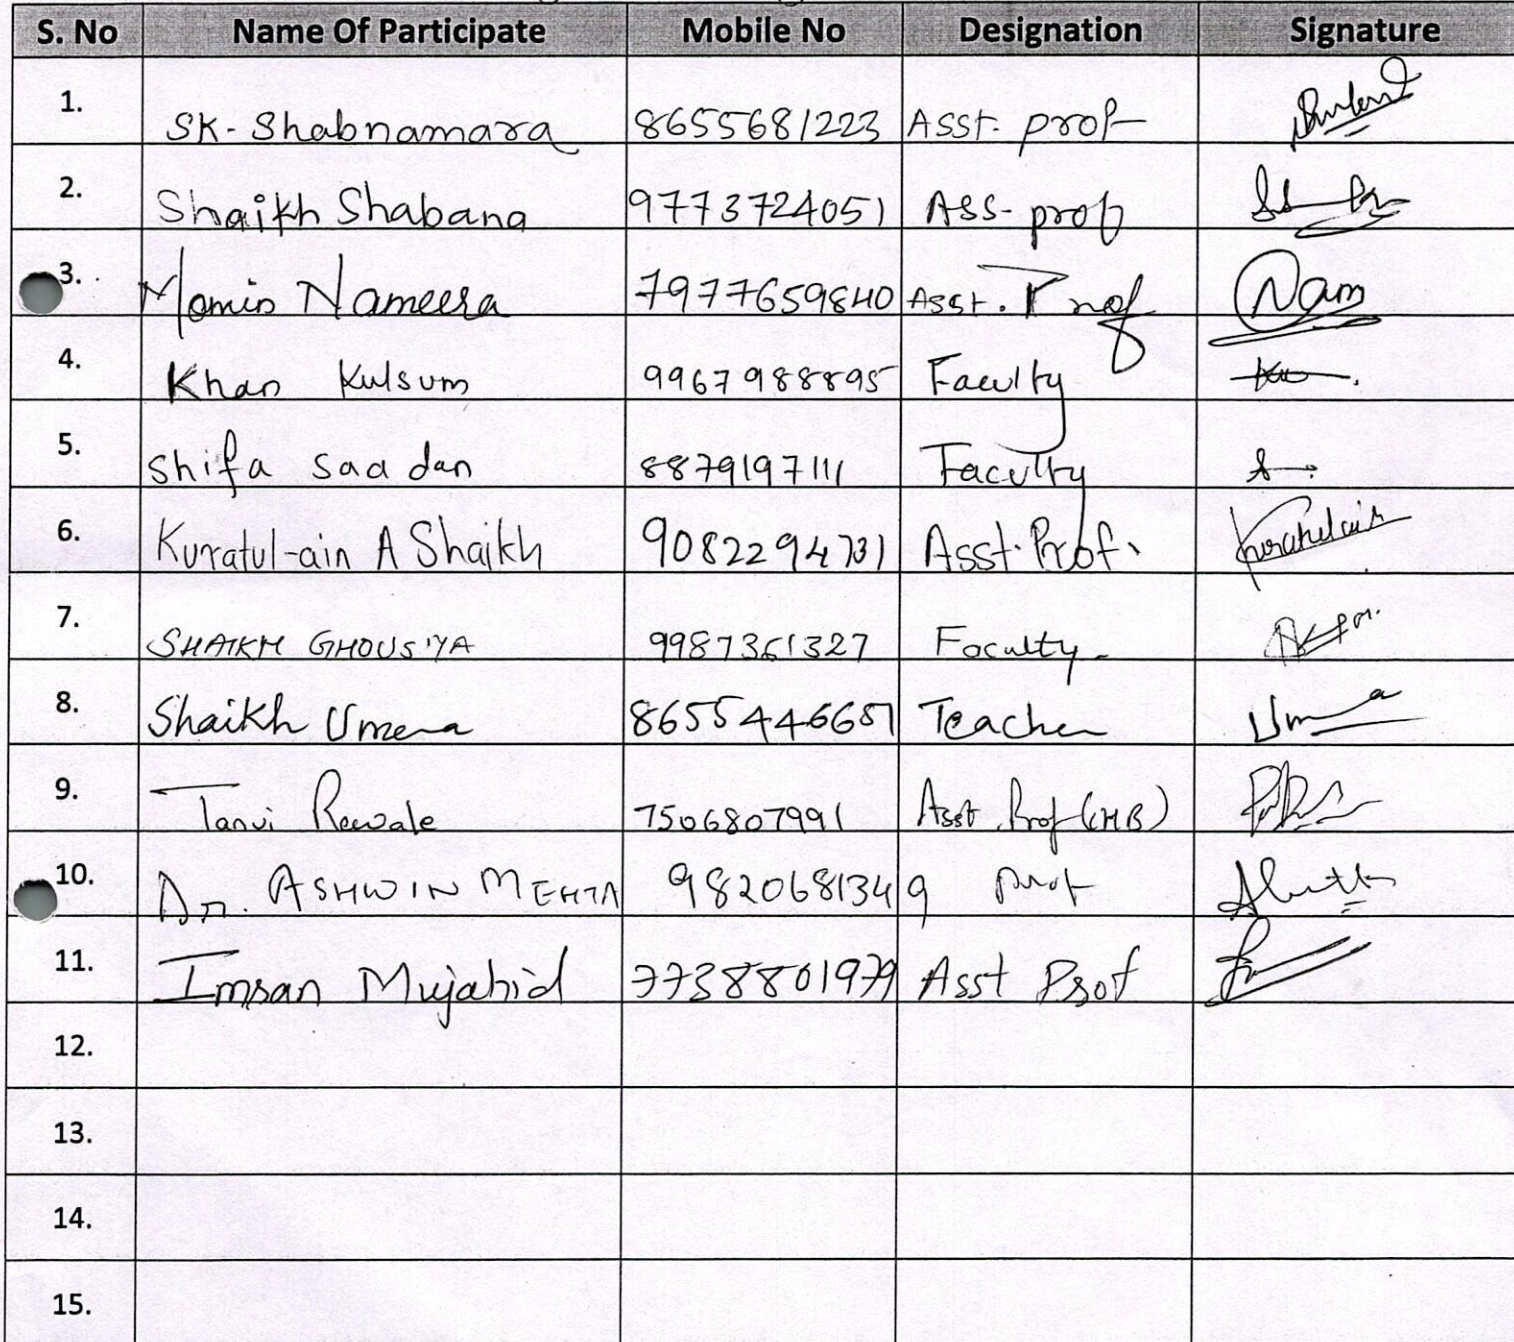 S. No Name Of Participate Mobile No Designation Signature
1. SK- Shabnamara 8655681223 Asst. prof
2. Shaikh Shabana 9773724051 Ass- prof
3. Momin Nameera 7977659840 Asst. Prof Nam
4. Khan Kulsum 9967988895 Faculty
5. Shifa Saadan 8879197111 Faculty
6. Kuratul-ain A Shaikh 9082294731 Asst. Prof. Kuratulain
7. SHAIKH GHOUSIYA 9987361327 Faculty
8. Shaikh Umera 8655446651 Teacher
9. Tanvi Rewale 7506807991 Asst. Prof (HB)
10. Dr. ASHWIN MEHTA 9820681349 Prof
11. Imran Mujahid 7738801979 Asst Prof
12.
13.
14.
15.